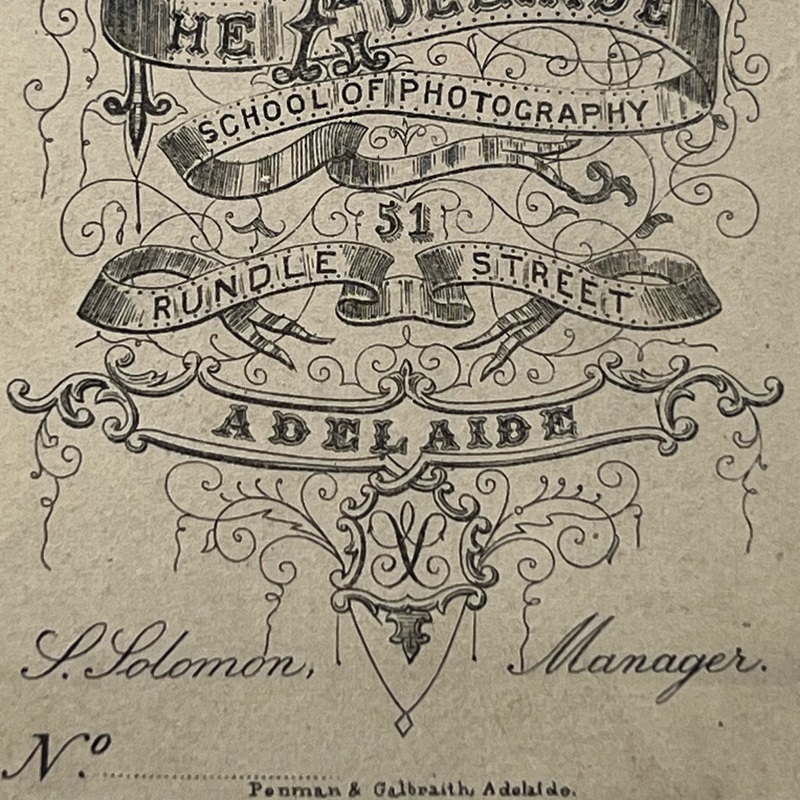 THE ADELAIDE
SCHOOL OF PHOTOGRAPHY
51
RUNDLE STREET
ADELAIDE
S. Solomon, Manager.
No.
Penman & Galbraith, Adelaide.